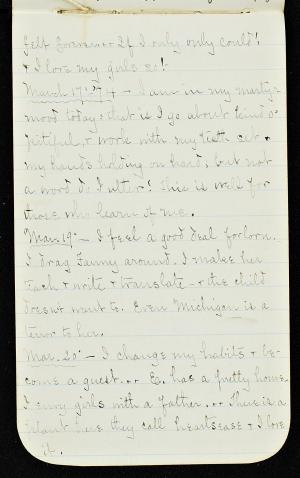 felt forever++ If I only only could!
+ I love my girls so!
March 17: '74 – I am in my martyr
mood today: that is I go about kind o'
pitiful, + work with my teeth set +
my hands holding on hard, but not
a word do I utter! This is well for
those who learn of me.
Mar. 19: – I feel a good deal forlorn.
I drag Fanny around. I make her
teach + write + translate – + the child
doesn't want to. Even Michigan is a
terror to her.
Mar. 20: – I change my habits + be-
come a guest. ++ E. has a pretty home.
I envy girls with a father. ++ There is a
plant here they call heartsease + I love
it.